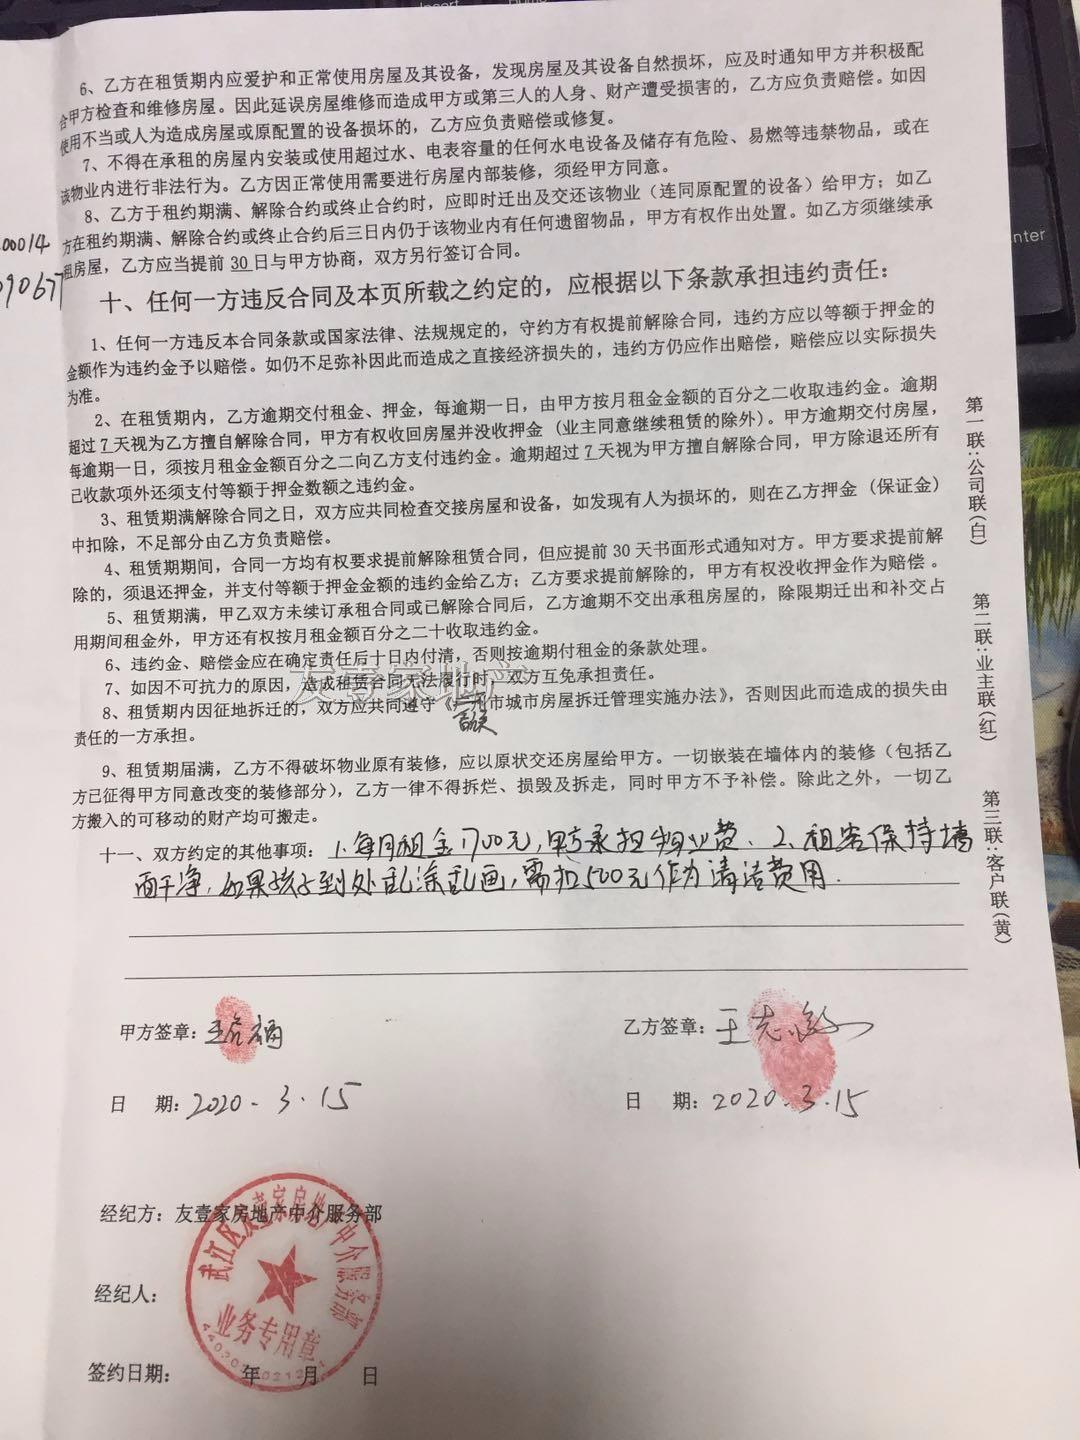 6、乙方在租赁期内应爱护和正常使用房屋及其设备，发现房屋及其设备自然损坏，应及时通知甲方并积极配
合甲方检查和维修房屋。因此延误房屋维修而造成甲方或第三人的人身、财产遭受损害的，乙方应负责赔偿。如因
使用不当或人为造成房屋或原配置的设备损坏的，乙方应负责赔偿或修复。
7、不得在承租的房屋内安装或使用超过水、电表容量的任何水电设备及储存有危险、易燃等违禁物品，或在
该物业内进行非法行为。乙方因正常使用需要进行房屋内部装修，须经甲方同意。
8、乙方于租约期满、解除合约或终止合约时，应即时迁出及交还该物业（连同原配置的设备）给甲方；如乙
方在租约期满、解除合约或终止合约后三日内仍于该物业内有任何遗留物品，甲方有权作出处置。如乙方须继续承
租房屋，乙方应当提前 30 日与甲方协商，双方另行签订合同。
00014
090677
十、任何一方违反合同及本页所载之约定的，应根据以下条款承担违约责任：
1、任何一方违反本合同条款或国家法律、法规规定的，守约方有权提前解除合同，违约方应以等额于押金的
金额作为违约金予以赔偿。如仍不足弥补因此而造成之直接经济损失的，违约方仍应作出赔偿，赔偿应以实际损失
为准。
2、在租赁期内，乙方逾期交付租金、押金，每逾期一日，由甲方按月租金金额的百分之二收取违约金。逾期
超过 7 天视为乙方擅自解除合同，甲方有权收回房屋并没收押金（业主同意继续租赁的除外）。甲方逾期交付房屋，
每逾期一日，须按月租金金额百分之二向乙方支付违约金。逾期超过 7 天视为甲方擅自解除合同，甲方除退还所有
已收款项外还须支付等额于押金数额之违约金。
3、租赁期满解除合同之日，双方应共同检查交接房屋和设备，如发现有人为损坏的，则在乙方押金（保证金）
中扣除，不足部分由乙方负责赔偿。
4、租赁期期间，合同一方均有权要求提前解除租赁合同，但应提前 30 天书面形式通知对方。甲方要求提前解
除的，须退还押金，并支付等额于押金金额的违约金给乙方；乙方要求提前解除的，甲方有权没收押金作为赔偿。
5、租赁期满，甲乙双方未续订承租合同或已解除合同后，乙方逾期不交出承租房屋的，除限期迁出和补交占
用期间租金外，甲方还有权按月租金额百分之二十收取违约金。
6、违约金、赔偿金应在确定责任后十日内付清，否则按逾期付租金的条款处理。
7、如因不可抗力的原因，造成租赁合同无法履行时，双方互免承担责任。
8、租赁期内因征地拆迁的，双方应共同遵守《市城市房屋拆迁管理实施办法》，否则因此而造成的损失由
责任的一方承担。
9、租赁期届满，乙方不得破坏物业原有装修，应以原状交还房屋给甲方。一切嵌装在墙体内的装修（包括乙
方已征得甲方同意改变的装修部分），乙方一律不得拆烂、损毁及拆走，同时甲方不予补偿。除此之外，一切乙
方搬入的可移动的财产均可搬走。
十一、双方约定的其他事项：1.每月租金1700元，甲方承担物业费、2、租客保持墙
面干净，如果孩子到处乱涂乱画，需扣500元作为清洁费用.
甲方签章：
乙方签章：王志
日 期：2020.3.15
日 期：2020.3.15
经纪方：友壹家房地产中介服务部
经纪人：
签约日期： 年 月 日
武江区友壹家房地产中介服务部
业务专用章
友壹家地产
第一联：公司联（白）
第二联：业主联（红）
第三联：客户联（黄）
enter
Insert
Home